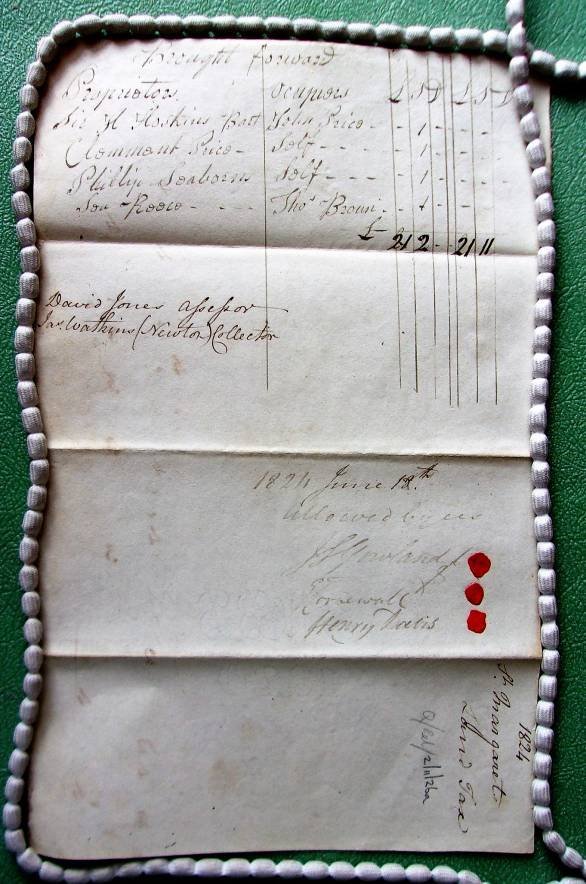 Brought forward
Proprietors Occupiers £ S D £ S D
Sir H Hoskins Bart John Price - - 1 - - - -
Clemment Price - Self - - 1 - - - -
Phillip Seaborn Self - - 1 - - - -
Reece - - - Thos Broun - 1 - - - -
£ 21 2 - 21 11
David Jones Assessor
Jas. Watkins (Newton) Collector
1824 June 18th
Allowed by us
Henry
1824
St. Margarets
Land Tax